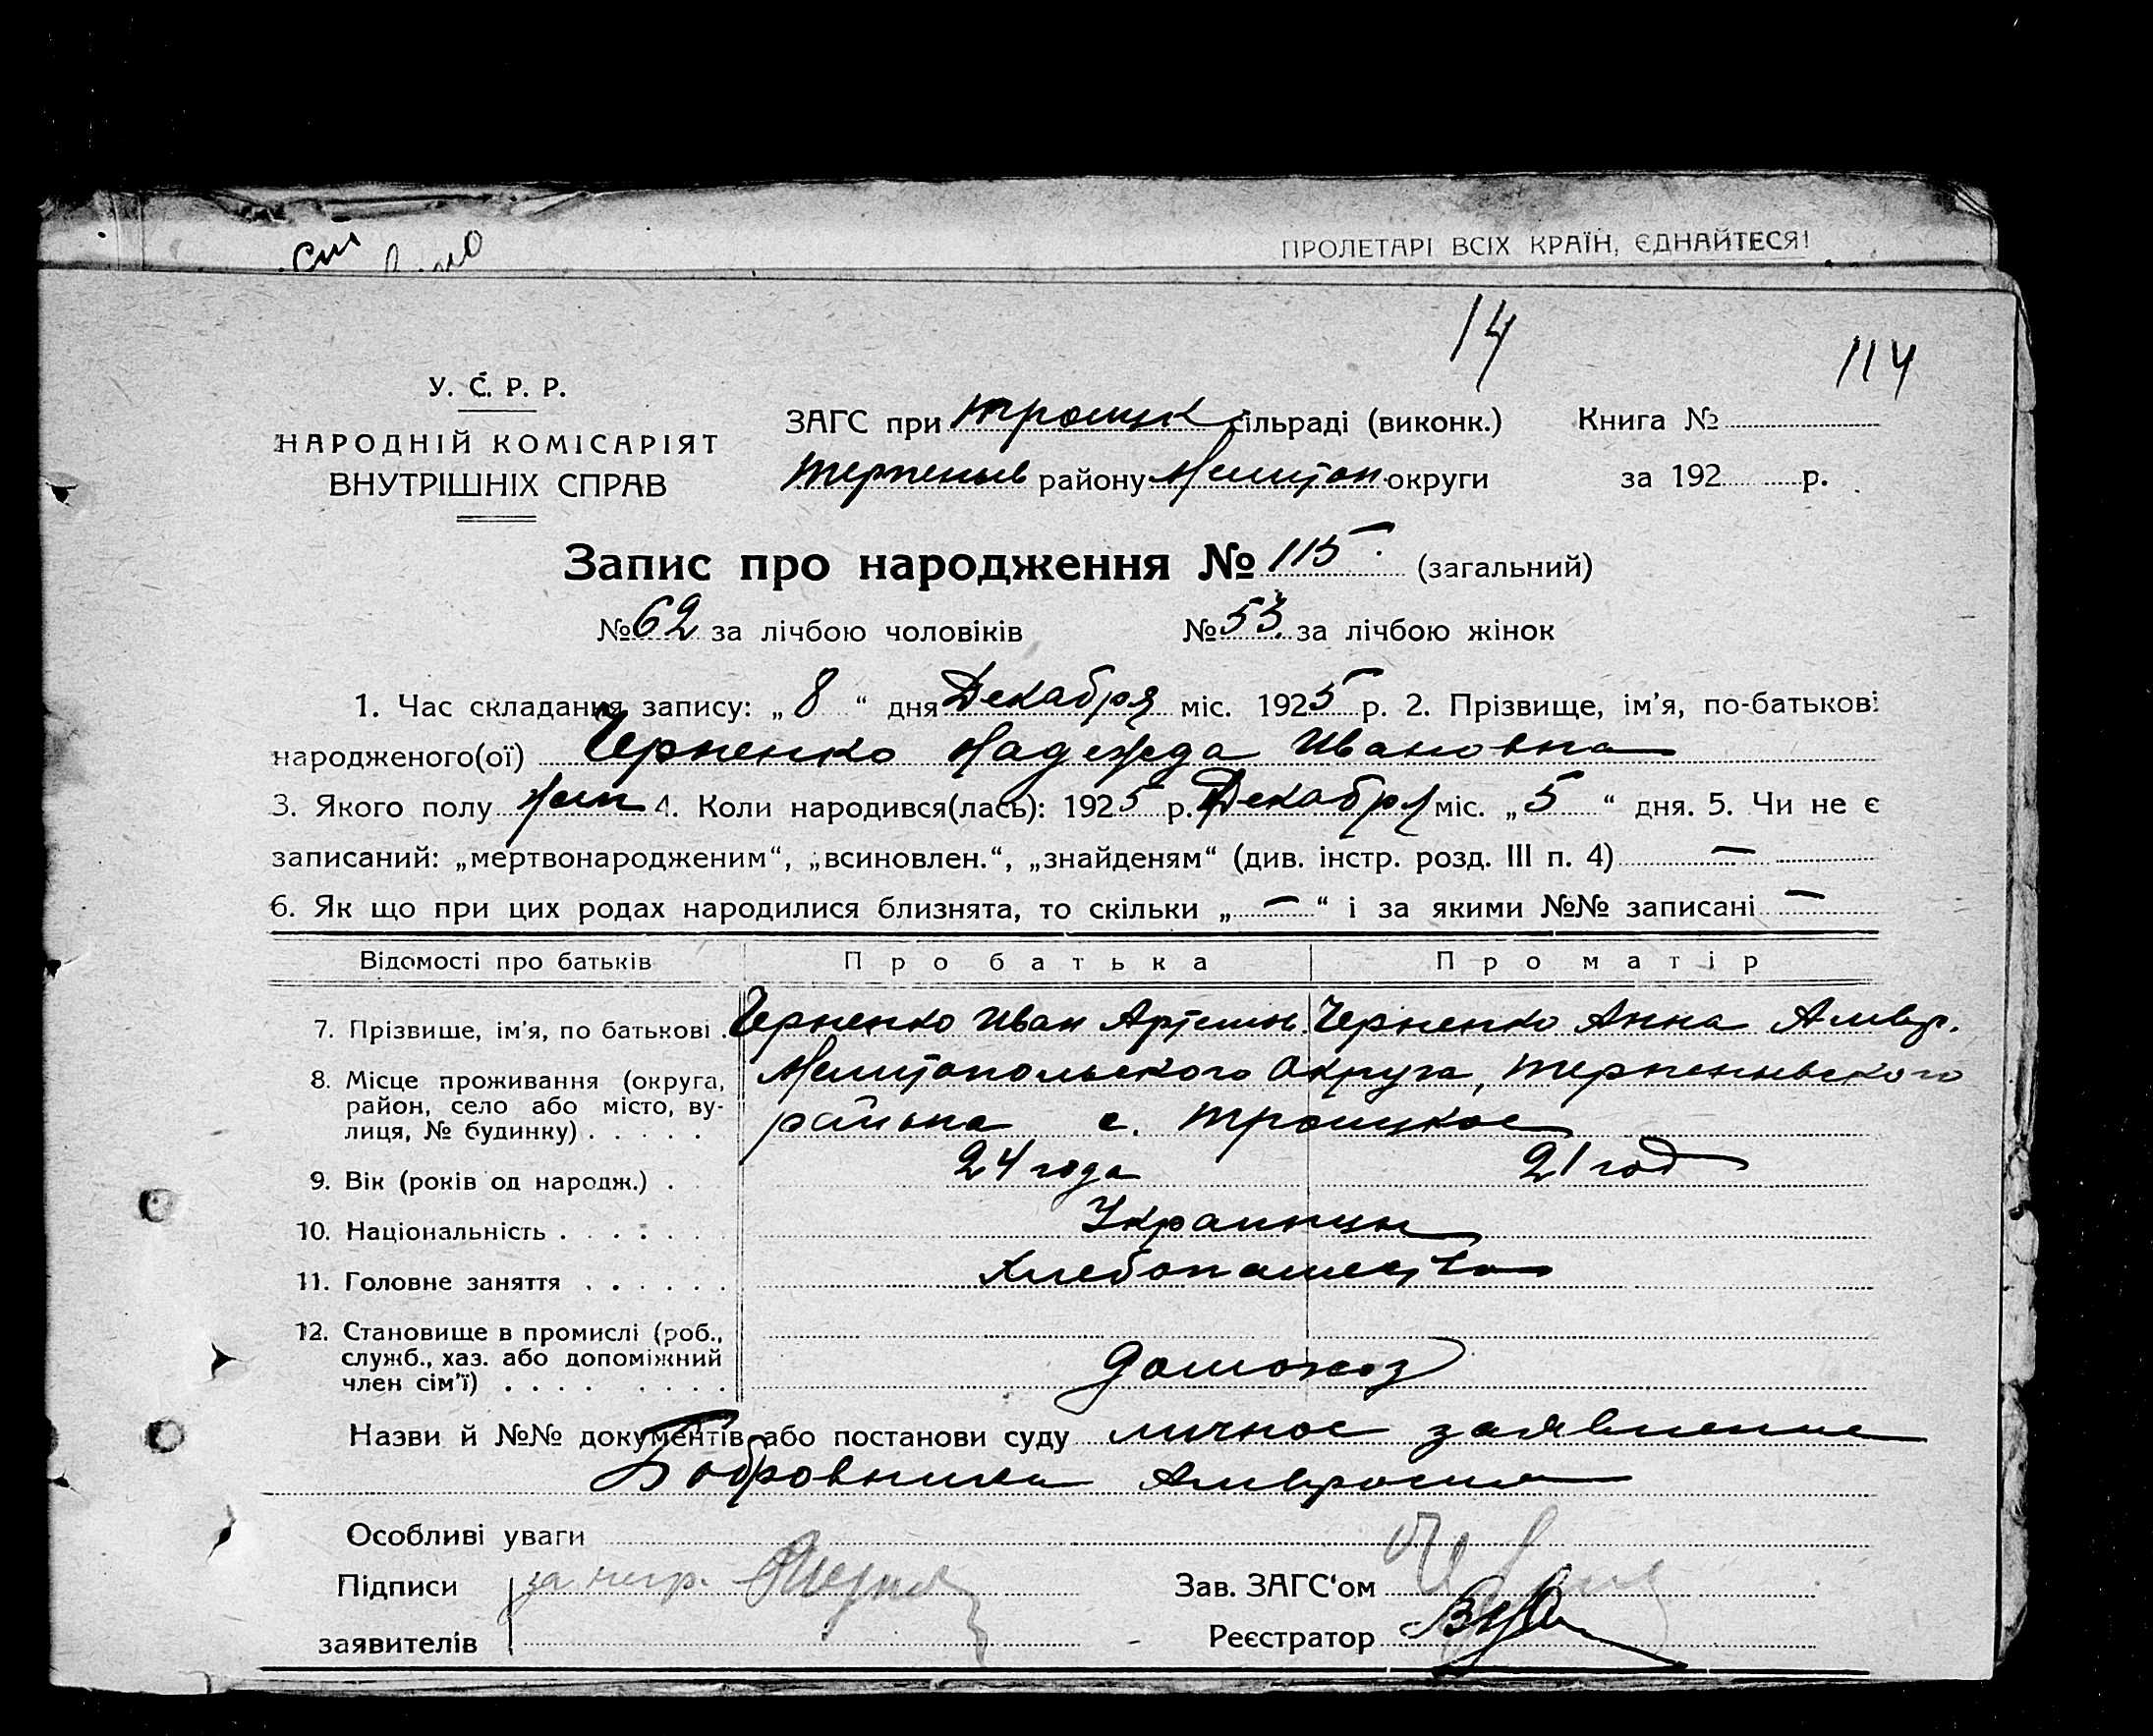 ПРОЛЕТАРІ ВСІХ КРАЇН, ЄДНАЙТЕСЯ!
14
114
У. С. Р. Р.
НАРОДНІЙ КОМІСАРІЯТ
ВНУТРІШНІХ СПРАВ
ЗАГС при Троицк сільраді (виконк.) Книга №
Терпеньев району Мелитоп. округи за 192 р.
Запис про народження № 115 (загальний)
№ 62 за лічбою чоловіків № 53 за лічбою жінок
1. Час складання запису: „ 8 “ дня Декабря міс. 1925 р. 2. Прізвище, ім'я, по-батькові
народженого(ої) Черненко Надежда Ивановна
3. Якого полу жен 4. Коли народився(лась): 1925 р. Декабря міс. „ 5 “ дня. 5. Чи не є
записаний: „мертвонародженим“, „всиновлен.“, „знайденям“ (див. інстр. розд. III п. 4) —
6. Як що при цих родах народилися близнята, то скільки „ — “ і за якими №№ записані —
Відомості про батьків Про батька Про матір
7. Прізвище, ім'я, по батькові . Черненко Иван Артемов. Черненко Анна Амвр.
8. Місце проживання (округа, Мелитопольского Округа, Терпеньевского
район, село або місто, ву-
лиця, № будинку) . . . . . района с. Троицкое
9. Вік (років од народж.) . 24 года 21 год
10. Національність . . . . . . Украинцы
11. Головне заняття . . . . . . Хлебопашество
12. Становище в промислі (роб.,
служб., хаз. або допоміжний
член сім'ї) . . . . . . . . . домохоз
Назви й №№ документів або постанови суду личное заявление
Бобровника Амвросия
Особливі уваги
Підписи за негр. Зав. ЗАГС'ом
заявителів Реєстратор